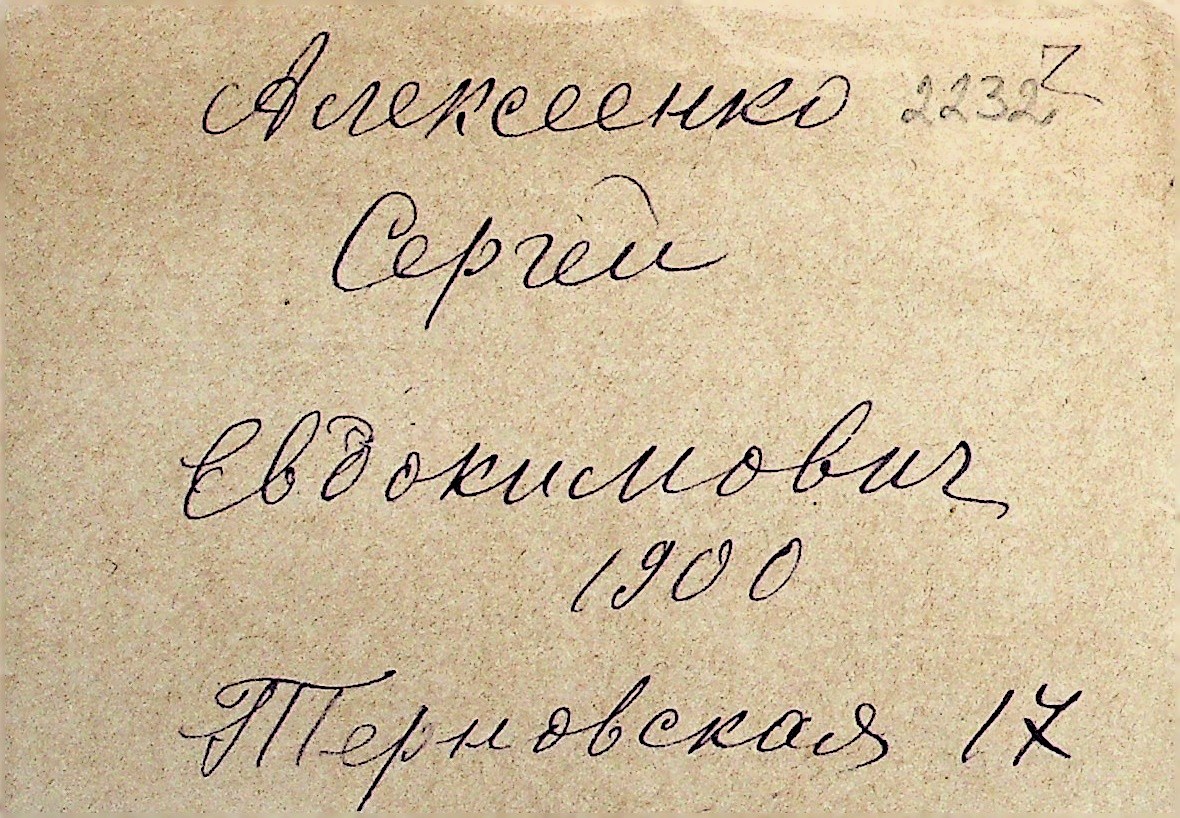 Алексеенко 2232
Сергей
Евдокимович
1900
Терновская 17